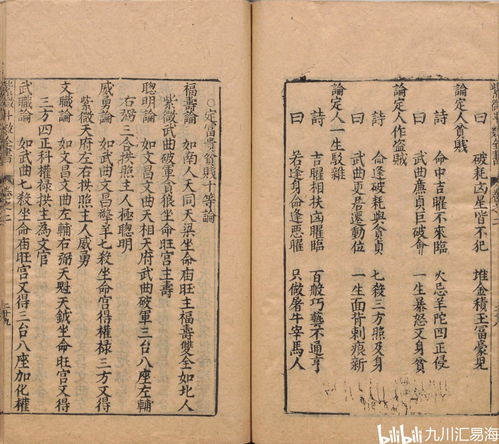 曰　破耗凶星皆不犯　堆金積玉富豪兒
論定人貧賤
詩　命中吉曜不來臨　火忌羊陀四正侵
曰　武曲廉貞巨破會　一生暴怒又身貧
論定人作盜賊
詩　命逢破耗與貪貞　七殺三方照及身
曰　武曲更居遷動位　一生面背刺痕新
論定人一生駁雜
詩　吉曜相扶凶曜臨　百般巧藝不通亨
曰　若逢身命逢惡曜　只做屠牛宰馬人
○定富貴貧賤十等論
福壽論　如南人天同天梁坐命廟旺主福壽雙全如北人
紫微武曲破軍貪狼坐命旺宮主壽
聰明論　如文昌文曲天相天府武曲破軍三台八座左輔
右弼三合拱照主人極聰明
威勇論　如武曲文昌擎羊七殺坐命宮得權祿三方又得
紫微天府左右拱照主人威勇
文職論　如文昌文曲左輔右弼天魁天鉞坐命旺宮又得
三方四正科權祿拱主為文官
武職論　如武曲七殺坐命廟旺宮又得三台八座加化權
卷之二
三十九
bilibili 九川汇易海